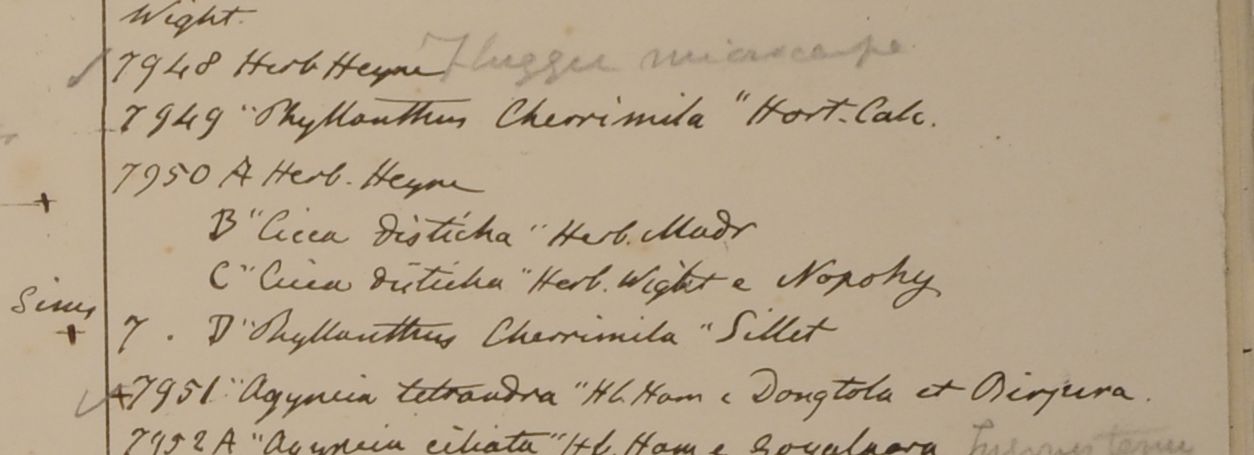 Wight.
7948 Herb Heyne Fluggea microcarpa
7949 "Phyllanthus Cherrimila" Hort. Calc.
7950 A Herb. Heyne
B "Cicca disticha" Herb. Madr
C "Cicca disticha" Herb. Wight e Nopohy
Sims
7. D "Phyllanthus Cherrimila" Sillet
7951 "Agyneia tetrandra" Hb. Ham e Dongtola et Birjura.
7952 A "Agyneia ciliata" Hb. Ham e Goyalpara